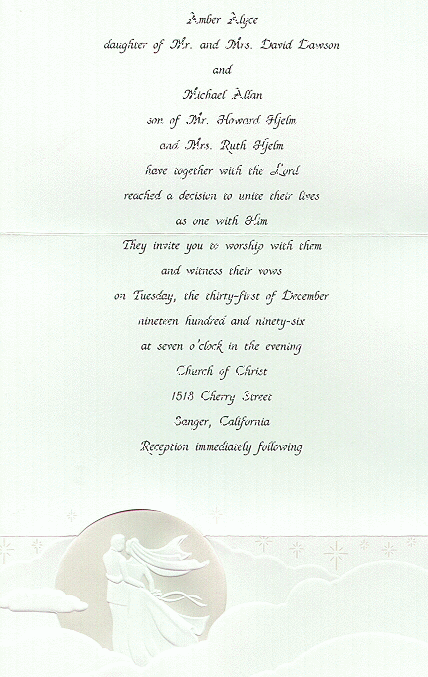 Amber Alyce
daughter of Mr. and Mrs. David Lawson
and
Michael Allan
son of Mr. Howard Hjelm
and Mrs. Ruth Hjelm
have together with the Lord
reached a decision to unite their lives
as one with Him
They invite you to worship with them
and witness their vows
on Tuesday, the thirty-first of December
nineteen hundred and ninety-six
at seven o'clock in the evening
Church of Christ
1513 Cherry Street
Sanger, California
Reception immediately following